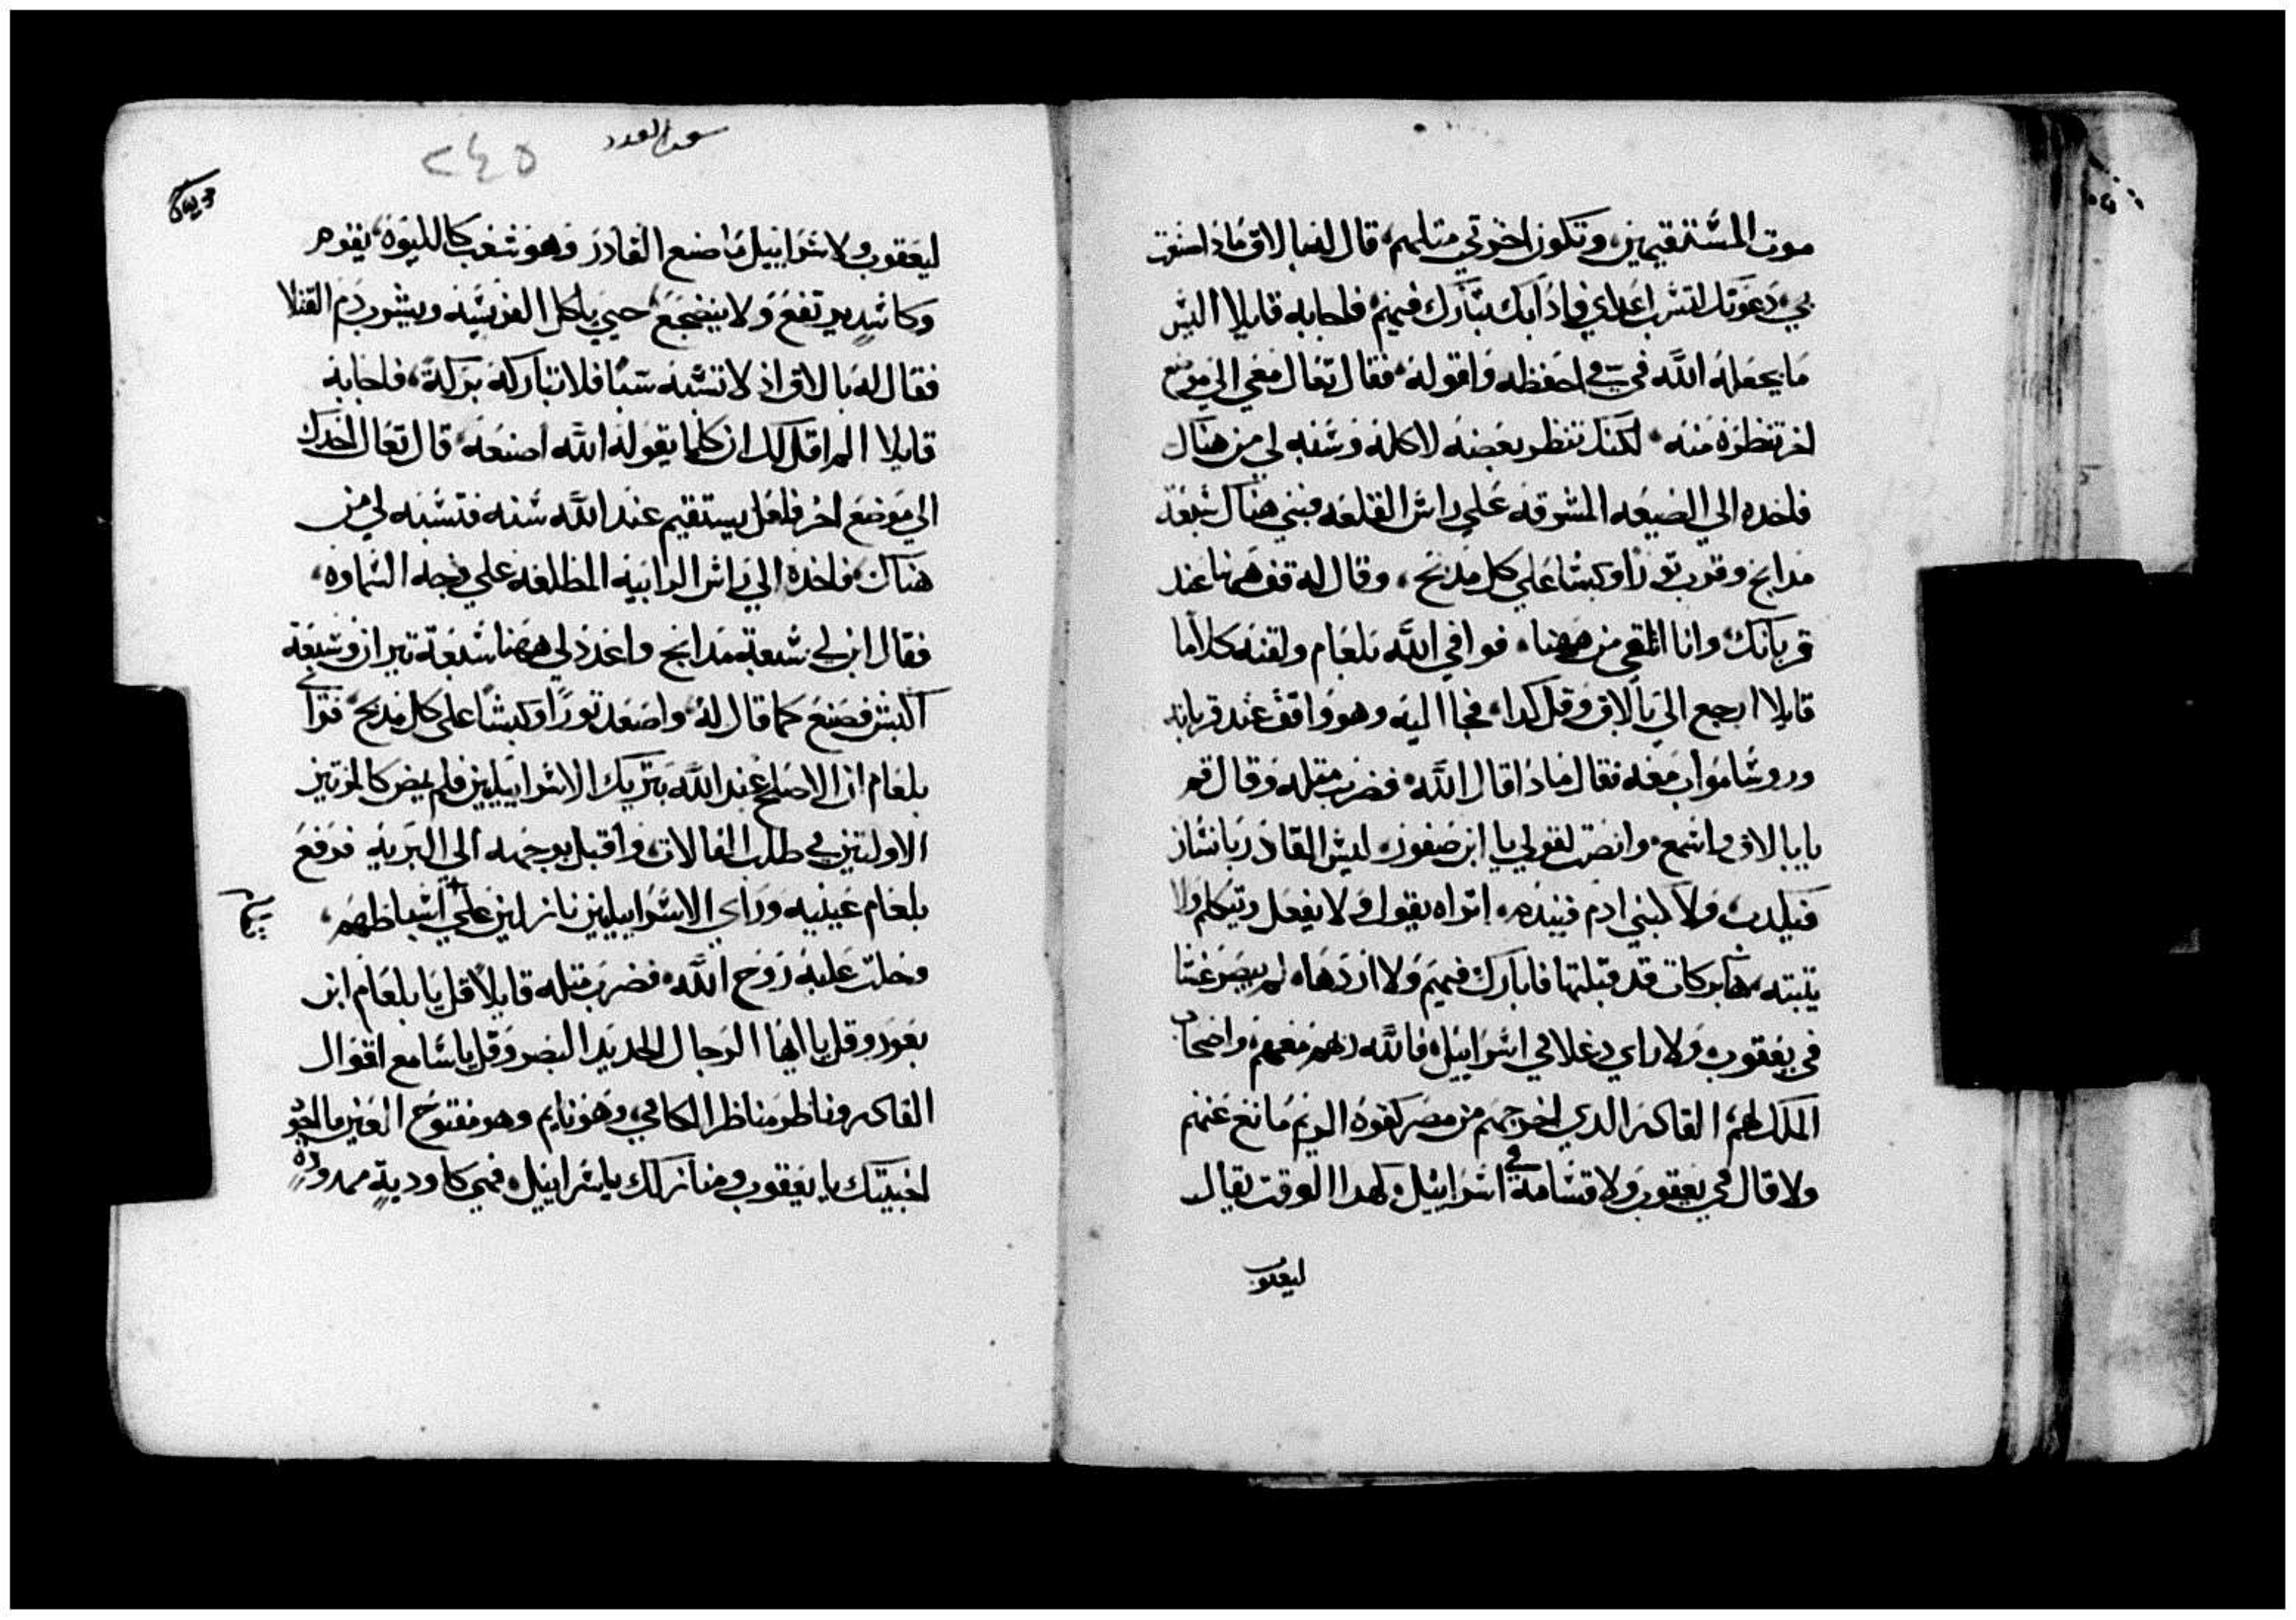 موت المستقيمين، وتكون اخرتي متلهم، قال له بالاق ماذا صنعت
بي دعوتك لتسب اعداي فاذا بك تبارك فيهم، فاجابه قايلا اليس
ما يجعله الله في في احفظه واقوله، فقال تعال معي الي موضع
اخر تنظره منه، لكنك تنظر بعضه لا كله وسبه لي من هناك
فاخده الي الضيعه المشرفه علي راس القلعه فبني هناك سبعة
مدابح وقرب تورا وكبشا علي كل مدبح، وقال له قف ههنا عند
قربانك، وانا اتلقي من ههنا، فوافي الله بلعام ولقنه كلاما
قايلا ارجع الي بالاق وقل كدا، فجا اليه وهو واقف عند قربانه
وروسا مواب معه فقال ماذا قال الله، فضرب متله وقال قم
يا بالاق واسمع، وانصت لقولي يا ابن صفور، ليس القادر بانسان
فيكدب، ولا كبني ادم فيندم، اتراه يقول ولا يفعل ويتكلم ولا
يتبته، هابركات قد قبلتها فابارك فيهم ولا اردها، لم يبصر غشا
في يعقوب، ولا راي دغلا في اسراييل، فالله ربهم معهم، واضحاب
الملك لهم القادر الدي اخرجهم من مصر كقوة الريم مانع عنهم
ولا قال في يعقوب ولا قسامة في اسراييل، لهدا الوقت يقال
ليعقوب
سفر العدد
٢٤٥
ليعقوب ولاسراييل ما صنع القادر وهو شعب كاللبوة، يقوم
وكاسد يرتفع ولا ينضجع، حتي ياكل الفريسه ويشرب دم القتلا
فقال له بالاق اذ لا تسبه سبا فلا تباركه بركة، فاجابه
قايلا الم اقل لك ان كلما يقوله الله اصنعه، قال تعال اخدك
الي موضع اخر فلعل يستقيم عند الله سبه فتسبه لي من
هناك، فاخده الي راس الرابيه المطلعه علي وجه السماوه،
فقال ابن لي سبعة مدابح واعدد لي ههنا سبعة تيران وسبعة
اكبش فصنع كما قال له، واصعد تورا وكبشا علي كل مدبح، فراي
بلعام ان الاصلح عند الله تبريك الاسراييليين فلم يمض كالمرتين
الاولتين في طلب الفالات، واقبل بوجهه الي البريه فرفع
بلعام عينيه وراي الاسراييليين نازلين علي اسباطهم،
وحلت عليه روح الله، فضرب متله قايلا قل يا بلعام ابن
بعور وقل يا ايها الرجال الحديد البصر وقل يا سامع اقوال
القادر وناظر مناظر الكافي، وهو نايم وهو مفتوح العين ما اجود
اخبيتك يا يعقوب ومنازلك ياسراييل، فهي كاودية ممدودة